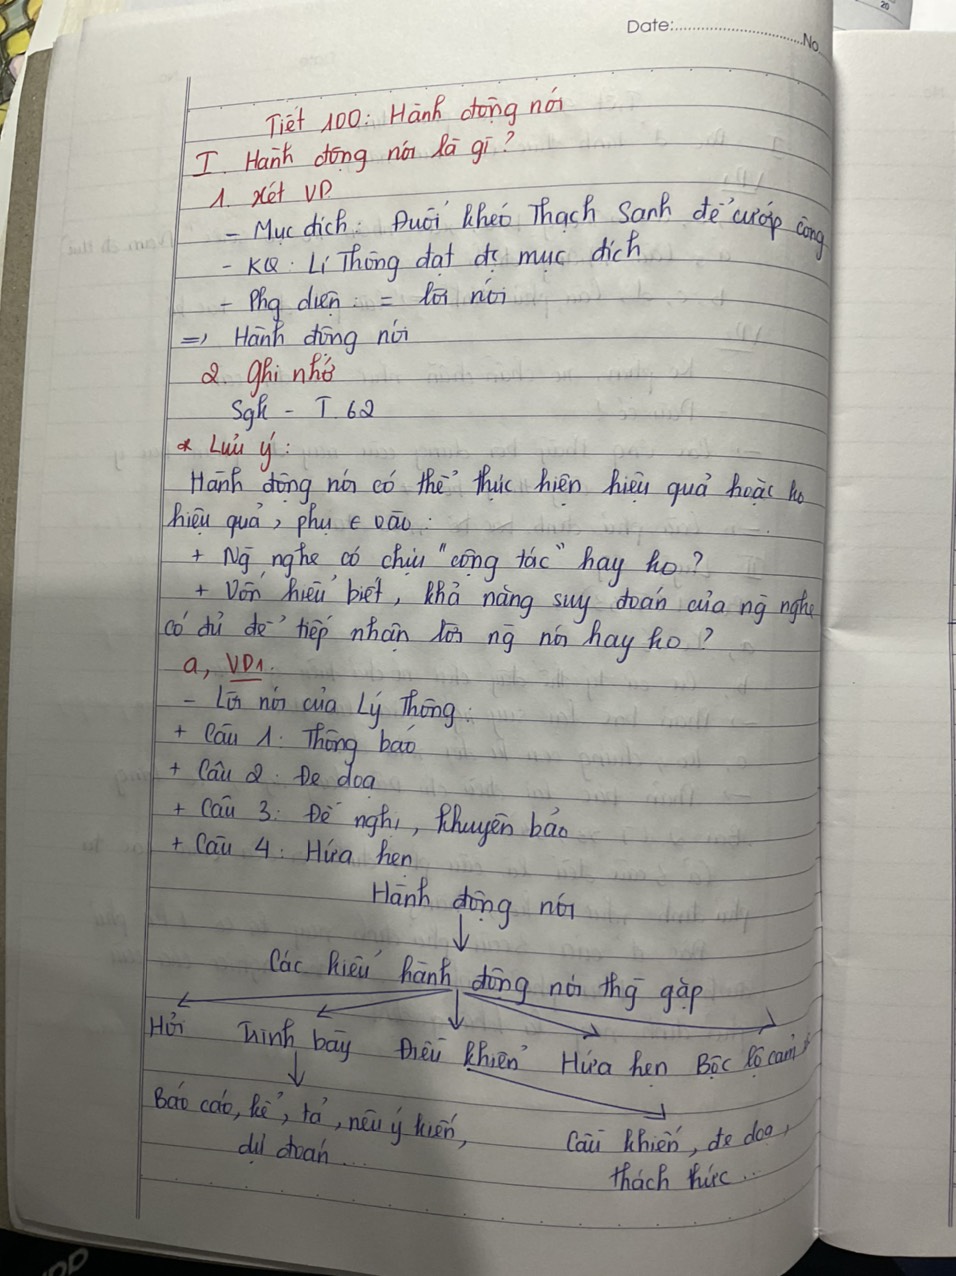 Date:..............................No
Tiết 100: Hành động nói
I. Hành động nói là gì?
1. Xét VD
- Mục đích: Đuổi khéo Thạch Sanh để cướp công
- KQ: Lí Thông đạt đc mục đích
- Phg diện: = lời nói
=> Hành động nói
2. Ghi nhớ
Sgk - T.62
* Lưu ý:
Hành động nói có thể thực hiện hiệu quả hoặc ko
hiệu quả, phụ ∈ vào:
+ Ng̀ nghe có chịu "cộng tác" hay ko?
+ Vốn hiểu biết, khả năng suy đoán của ng̀ nghe
có đủ để tiếp nhận lời ng̀ nói hay ko?
a, VD1.
- Lời nói của Lý Thông:
+ Câu 1: Thông báo
+ Câu 2: Đe doạ
+ Câu 3: Đề nghị, khuyên bảo
+ Câu 4: Hứa hẹn
Hành động nói
↓
Các kiểu hành động nói thg̀ gặp
Hỏi Trình bày Điều khiển Hứa hẹn Bộc lộ cảm
Báo cáo, kể, tả, nêu ý kiến,
dự đoán...
Cầu khiến, đe doạ,
thách thức...
20